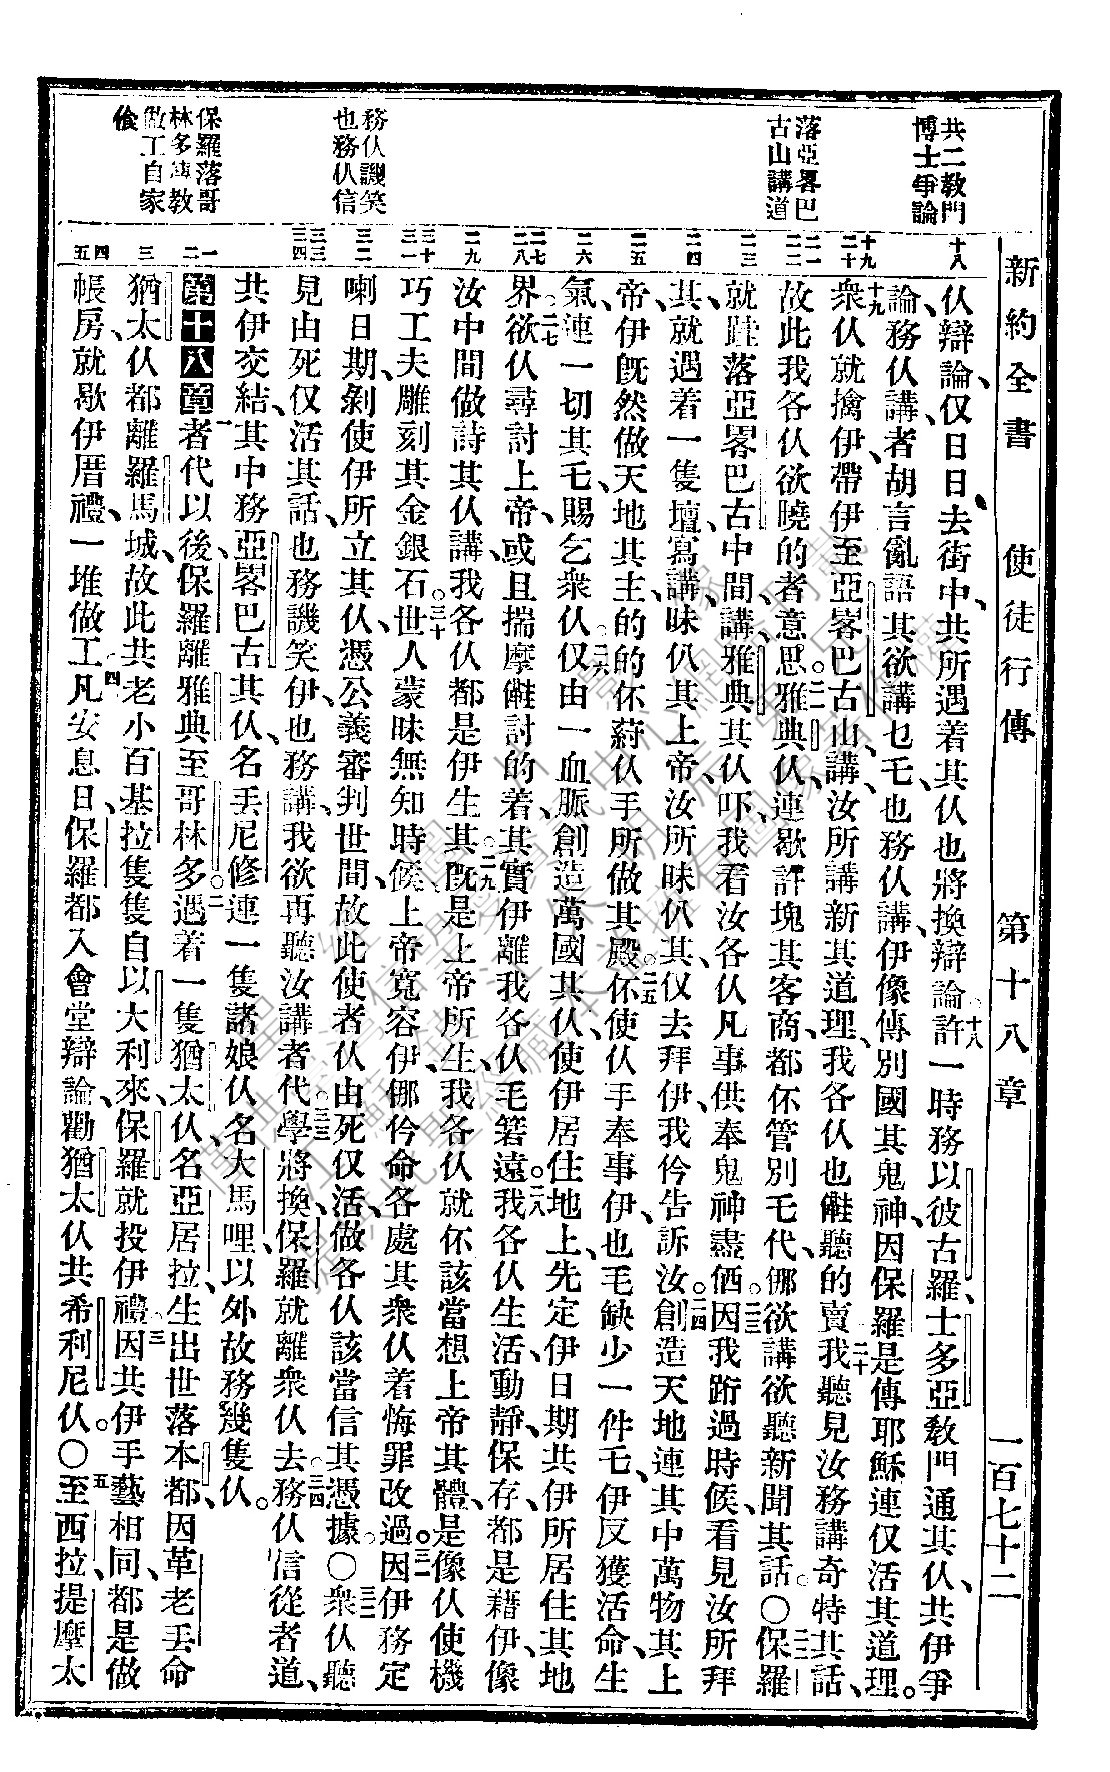 新約全書　使徒行傳　第十八章　一百七十二
共二教門
博士爭論
落亞畧巴
古山講道
務仈譏笑
也務仈信
保羅落哥
林多傳教
做工自家
十八
十九
二十
二一
二二
二三
二四
二五
二六
二七
二八
二九
三十
三一
三二
三三
三四
一
二
三
四
五
仈辯論、仅日日、去街中、共所遇着其仈也將換辯論、十八許一時務以彼古羅、士多亞教門通其仈、共伊爭
論、十九務仈講、者胡言亂語其欲講乜乇、也務仈講、伊像傳別國其鬼神、因保羅是傳耶穌、連仅活其道理。
衆仈就擒伊、帶伊至亞畧巴古山、講、汝所講新其道理、我各仈也䧹聽的賣、二十我聽見汝務講奇特其話、
故此我各仈欲曉的者意思。二一雅典仈、連歇許塊其客商、都伓管別乇代、㑚欲講欲聽新聞其話。○二二保羅
就跬落亞畧巴古中間、講、雅典其仈吓、我看汝各仈凡事供奉鬼神盡𠋡、二三因我跡過時候、看見汝所拜
其、就遇着一隻壇、寫講、昧仈其上帝、汝所昧仈其、仅去拜伊、我仱告訴汝。二四創造天地連其中萬物其上
帝、伊旣然做天地其主、的的伓䕎仈手所做其殿、二五伓使仈手奉事伊、也毛缺少一件乇、伊反獲活命、生
氣、連一切其乇、賜乞衆仈、二六仅由一血脈創造萬國其仈、使伊居住地上、先定伊日期、共伊所居住其地
界、二七欲仈尋討上帝、或且揣摩䧹討的着、其實伊離我各仈毛𥴊遠。二八我各仈生活、動靜、保存、都是藉伊、像
汝中間做詩其仈講、我各仈都是伊生其、二九旣是上帝所生、我各仈就伓該當想上帝其體、是像仈使機
巧工夫雕刻其金銀石。三十世人蒙昧無知時候、上帝寬容伊、㑚仱命各處其衆仈着悔罪改過、三一因伊務定
喇日期、剝使伊所立其仈、憑公義審判世間、故此使者仈由死仅活、做各仈該當信其憑據。○三二衆仈聽
見由死仅活其話、也務譏笑伊、也務講、我欲再聽汝講者代學、三三將換保羅就離衆仈去、三四務仈信從者道、
共伊交結、其中務亞畧巴古其仈、名丟尼修、連一隻諸娘仈、名大馬哩、以外故務幾隻仈。
第十八章一者代以後、保羅離雅典、至哥林多、二遇着一隻猶太仈、名亞居拉、生出世落本都、因革老丟命
猶太仈都離羅馬城、故此共老小百基拉隻隻自以大利來、保羅就投伊禮、三因共伊手藝相同、都是做
帳房、就歇伊厝禮、一堆做工、四凡安息日、保羅都入會堂辯論、勸猶太仈共希利尼仈。○五至西拉、提摩太